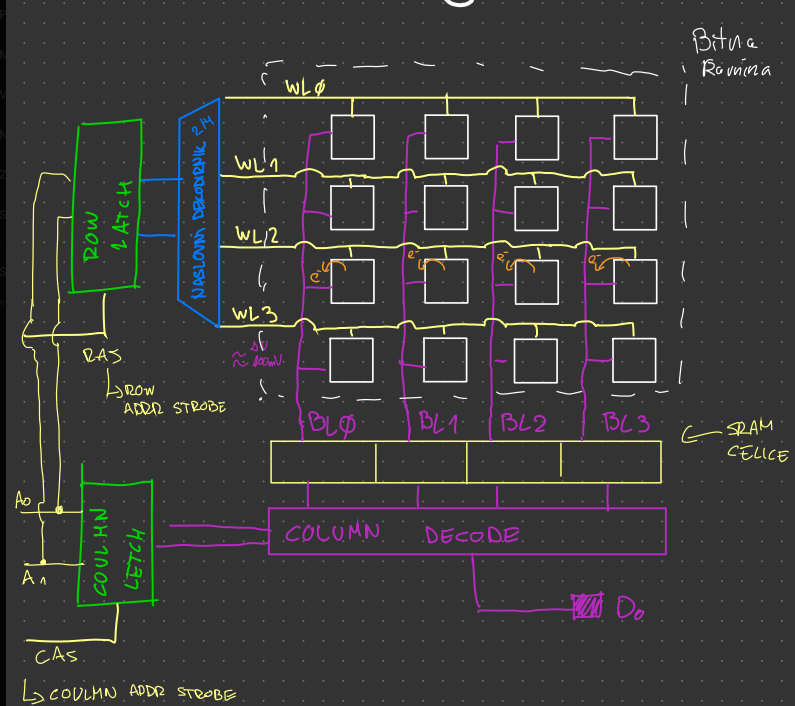 Bitna
Ravnina
WL0
WL1
WL2
WL3
ROW
LATCH
NASLOVNI DEKODIRNIK 2/4
e-
e-
e-
e-
ΔV
≈ 100mV
RAS
↳ROW
ADDR STROBE
BL0
BL1
BL2
BL3
SRAM
CELICE
A0
A1
COULMN
LETCH
COLUMN DECODE
D0
CAS
↳COULMN ADDR STROBE